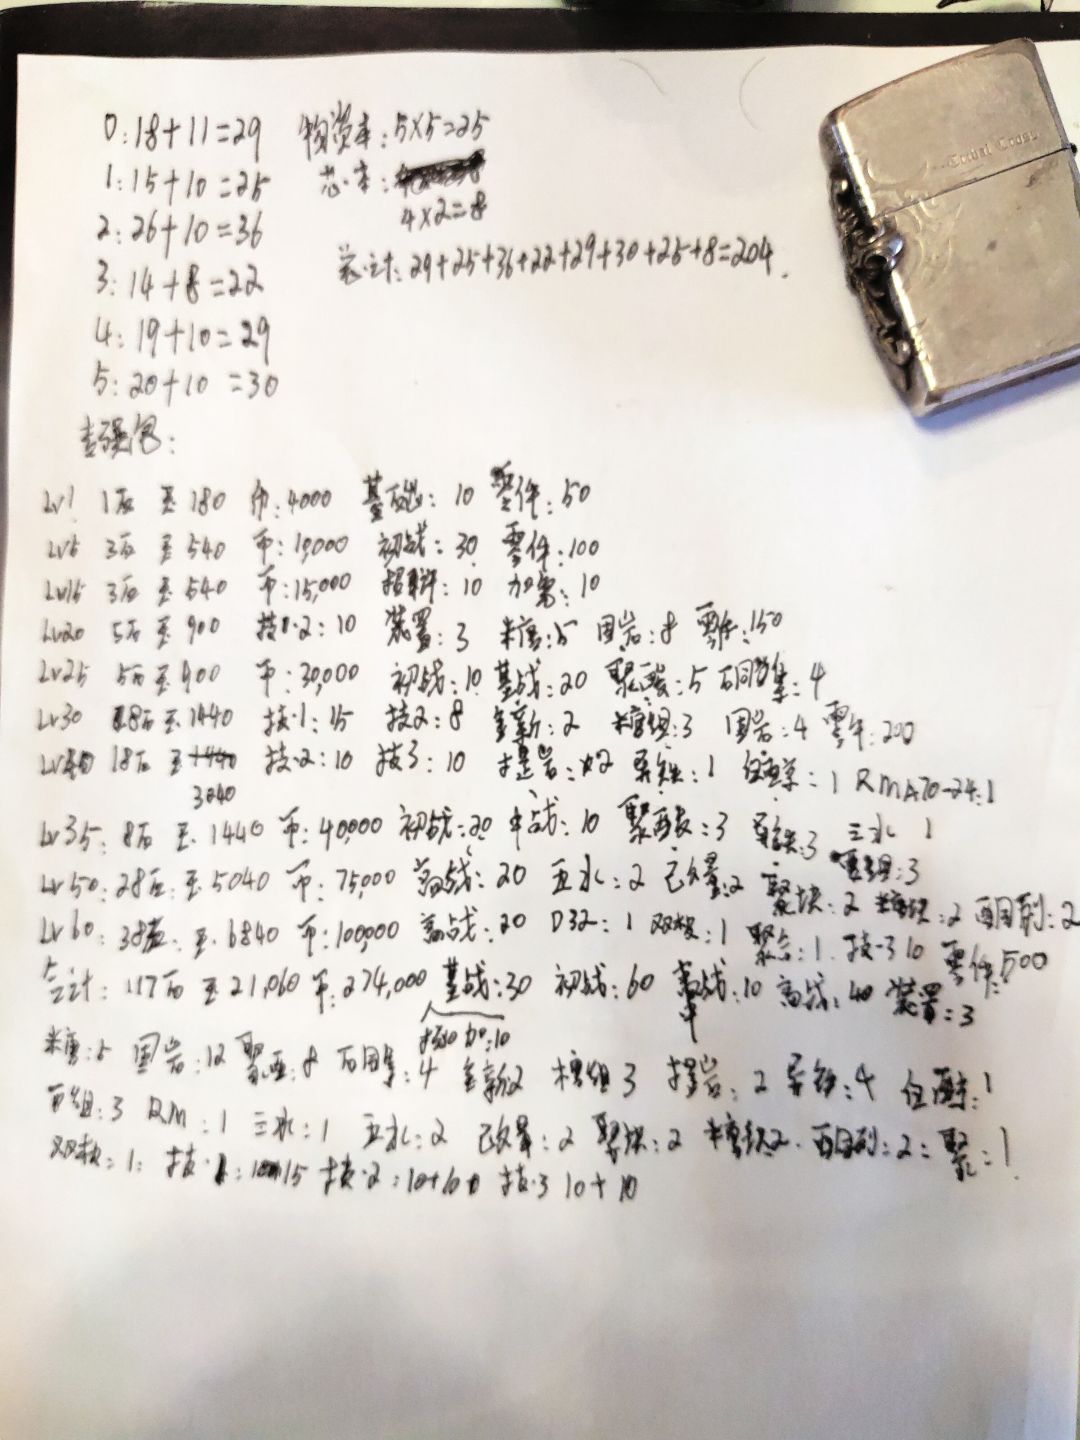 0:18+11=29 物资本:5×5=25
1:15+10=25 芯·本:
4×2=8
2:26+10=36
总·计:29+25+36+22+29+30+25+8=204.
3:14+8=22
4:19+10=29
5:20+10=30
Lv1 1石 玉180 币:4000 基础:10 零件:50
Lv5 3石 玉540 币:10,000 初战:30 零件:100
Lv15 3石 玉540 币:15,000 招聘:10 加急:10
Lv20 5石 玉900 技·2:10 装置:3 糖:5 固岩:8 零件:150
Lv25 5石 玉900 币:30,000 初战:10 基战:20 聚酸:5 酮集:4
Lv30 8石 玉1440 技·1:15 技2:8 全新:2 糖组:3 固岩:4 零件:200
Lv40 18石 玉 3240 技·2:10 技3:10 提岩:2 异铁:1 白马醇:1 RMA70-24:1
Lv35: 8石 玉 1440 币:40,000 初战:20 中战:10 聚酸:3 异铁:3 三水 1
酮组:3
Lv50: 28石: 玉5040 币:75,000 高战:20 五水:2 改量:2 聚块:2 糖块:2 酮列:2
Lv60: 38石: 玉 6840 币:100,000 高战:20 D32:1 双极:1 聚合:1 技·3 10 零件:500
合计: 117石 玉21,060 币:274,000 基战:30 初战:60 中战:10 高战:40 装置:3
招10 加:10
糖:5 固岩:12 聚酸:8 酮集:4 全新2 糖组3 提岩:2 异铁:4 白马醇:1
酮组:3 RM:1 三水:1 五水:2 改量:2 聚块:2 糖块2 酮列:2: 聚:1
双极:1: 技·1:15 技·2:10+ 技·3 10+10